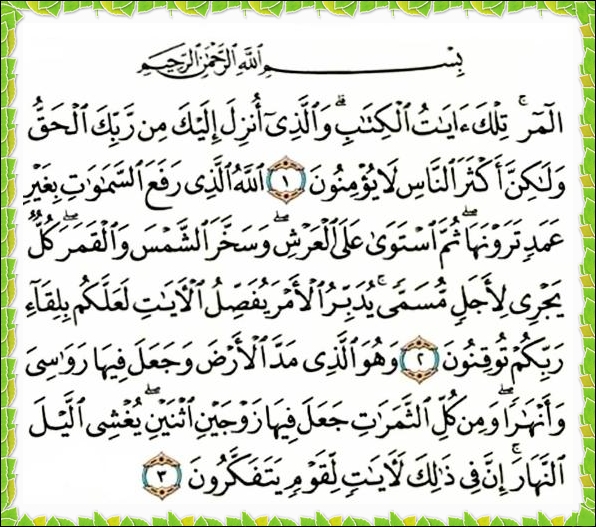 بِسْمِ اللَّهِ الرَّحْمَٰنِ الرَّحِيمِ
الٓمٓرۚ تِلْكَ ءَايَٰتُ الْكِتَٰبِۗ وَالَّذِىٓ أُنزِلَ إِلَيْكَ مِن رَّبِّكَ الْحَقُّ
وَلَٰكِنَّ أَكْثَرَ النَّاسِ لَا يُؤْمِنُونَ ١ اللَّهُ الَّذِى رَفَعَ السَّمَٰوَٰتِ بِغَيْرِ
عَمَدٍ تَرَوْنَهَاۖ ثُمَّ اسْتَوَىٰ عَلَى الْعَرْشِۖ وَسَخَّرَ الشَّمْسَ وَالْقَمَرَۖ كُلٌّ
يَجْرِى لِأَجَلٍ مُّسَمًّىۚ يُدَبِّرُ الْأَمْرَ يُفَصِّلُ الْءَايَٰتِ لَعَلَّكُم بِلِقَآءِ
رَبِّكُمْ تُوقِنُونَ ٢ وَهُوَ الَّذِى مَدَّ الْأَرْضَ وَجَعَلَ فِيهَا رَوَٰسِىَ
وَأَنْهَٰرًاۖ وَمِن كُلِّ الثَّمَرَٰتِ جَعَلَ فِيهَا زَوْجَيْنِ اثْنَيْنِۖ يُغْشِى الَّيْلَ
النَّهَارَۚ إِنَّ فِى ذَٰلِكَ لَءَايَٰتٍ لِّقَوْمٍ يَتَفَكَّرُونَ ٣